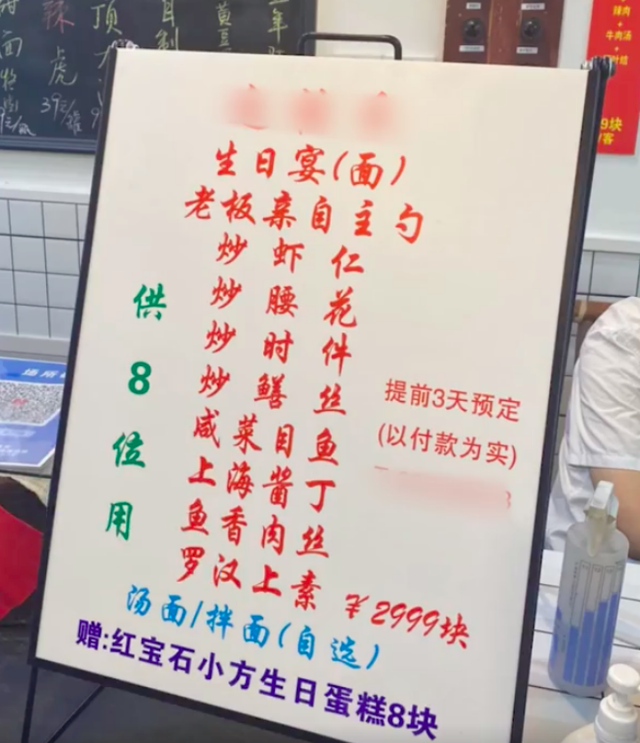 生日宴(面)
老板亲自主勺
炒虾仁
炒腰花
炒时件
炒鳝丝
咸菜目鱼
上海酱丁
鱼香肉丝
罗汉上素 ¥2999块
供8位用
提前3天预定
(以付款为实)
汤面/拌面(自选)
赠:红宝石小方生日蛋糕8块
辣肉
+
牛肉汤
+
9块
虎
39元/罐
顶
黄豆